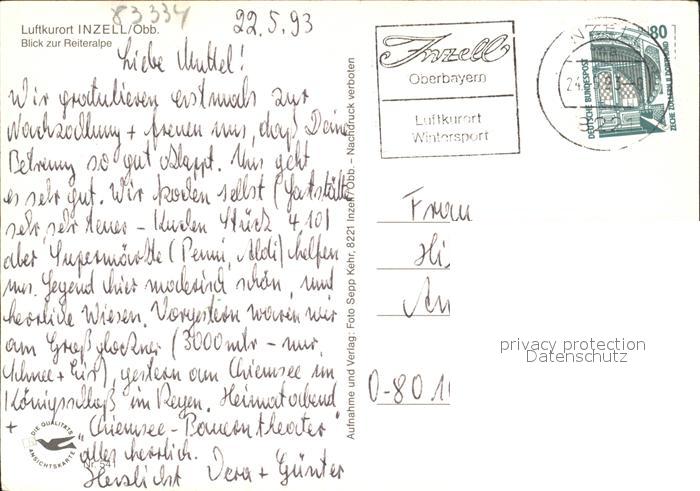 83334
22.5.93
Luftkurort INZELL/Obb.
Blick zur Reiteralpe
Liebe Muttel!
Wir gratulieren erstmals zur
Nachzahlung + freuen uns, daß Deine
Betreuung so gut klappt. Uns geht
es sehr gut. Wir kochen selbst (Gaststätte
sehr, sehr teuer - Kuchen Stück 4,10)
aber Supermärkte (Penni, Aldi) helfen
uns. Gegend hier malerisch schön, und
herrliche Wiesen. Vorgestern waren wir
am Großglockner (3000 mtr - nur
Schnee + Eis), gestern am Chiemsee im
Königsschloß im Regen. Heimatabend
+ "Chiemsee-Bauerntheater"
alles herrlich.
Herzlichst Vera + Günter
DIE QUALITÄTS
ANSICHTSKARTE
Nr. 541
Aufnahme und Verlag: Foto Sepp Kehr, 8221 Inzell/Obb. – Nachdruck verboten
Inzell
Oberbayern
Luftkurort
Wintersport
INZELL
80
DEUTSCHE BUNDESPOST
ZECHE ZOLLERN II DORTMUND
Frau
Hi
An
O-801
privacy protection
Datenschutz